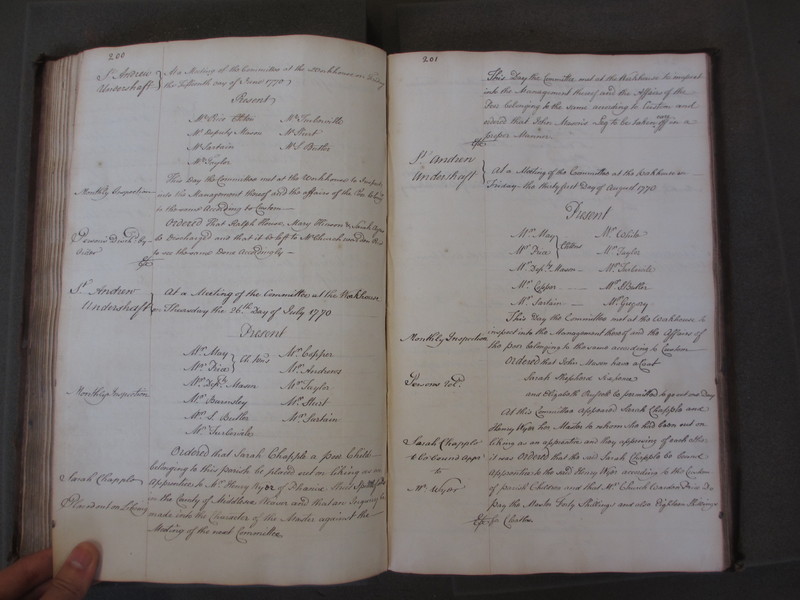 200
St. Andrew Undershaft
At a Meeting of the Committee at the Workhouse on Friday
the Fifteenth day of June 1770
Present
Mr. Turleville
Mr. Deputy Mason Mr. Sturt
Mr. Sartain Mr. S. Butler
Mr. Taylor
This Day the Committee met at the Workhouse to Inspect
Monthly Inspection
into the Management thereof and the affairs of the Poor belong
to the same According to Custom
Ordered That Ralph House, Mary
be Discharged and that it be left to Mr. Church warden
order
to see the same Done Accordingly
St. Andrew Undershaft
At a Meeting of the Committee at the Workhouse
on Thursday the 26th Day of July 1770
Present
Mr. May Mr. Capper
Mr. Andrews
Mr. Depty. Mason Mr. Taylor
Monthly Inspection
Mr. Barnsley Mr. Sturt
Mr. S. Butler Mr. Sartain
Mr. Turlevile
Ordered that Sarah Chapple a poor Child
belonging to this parish be placed out on liking as an
Sarah Chapple
Apprentice to Mr. Henry
in the County of Middlesex Weaver and that an Inquiry be
Placed out on Liking
made into the Character of the Master against the
Meeting of the next Committee
201
This Day the Committee met at the Workhouse to inspect
into the Management thereof and the Affairs of the
Poor belonging to the same according to Custom and
ordered that John Mason's Leg to be taken off in a
proper Manner
St. Andrew Undershaft
At a Meeting of the Committee at the Workhouse on
Friday the thirty first Day of August 1770
Present
Mr. May Mr. White
Mr. Taylor
Mr. Depty. Mason Mr. Turlevile
Mr. Capper Mr. S Butler
Mr. Sartain Mr. Gregory
This Day the Committee met at the Workhouse to
Monthly Inspection
inspect into the Management thereof and the Affairs of
the poor belonging to the same according to Custom
Ordered that John Mason have a Coat
Sarah Shepherd
and Elizabeth be permitted to go out one Day
At this Committee appeared Sarah Chapple and
Henry Wyer her Master to whom she had been out on
liking as an apprentice and they approving of each other
Sarah Chapple
it was Ordered that the said Sarah Chapple be bound
to be bound Appr.
Apprentice to the said Henry Wyer according to the Custom
to
of parish Children and that Mr. Church Warden
Mr. Wyer
pay the Master Forty Shillings and also Eighteen Shillings
for Cloaths